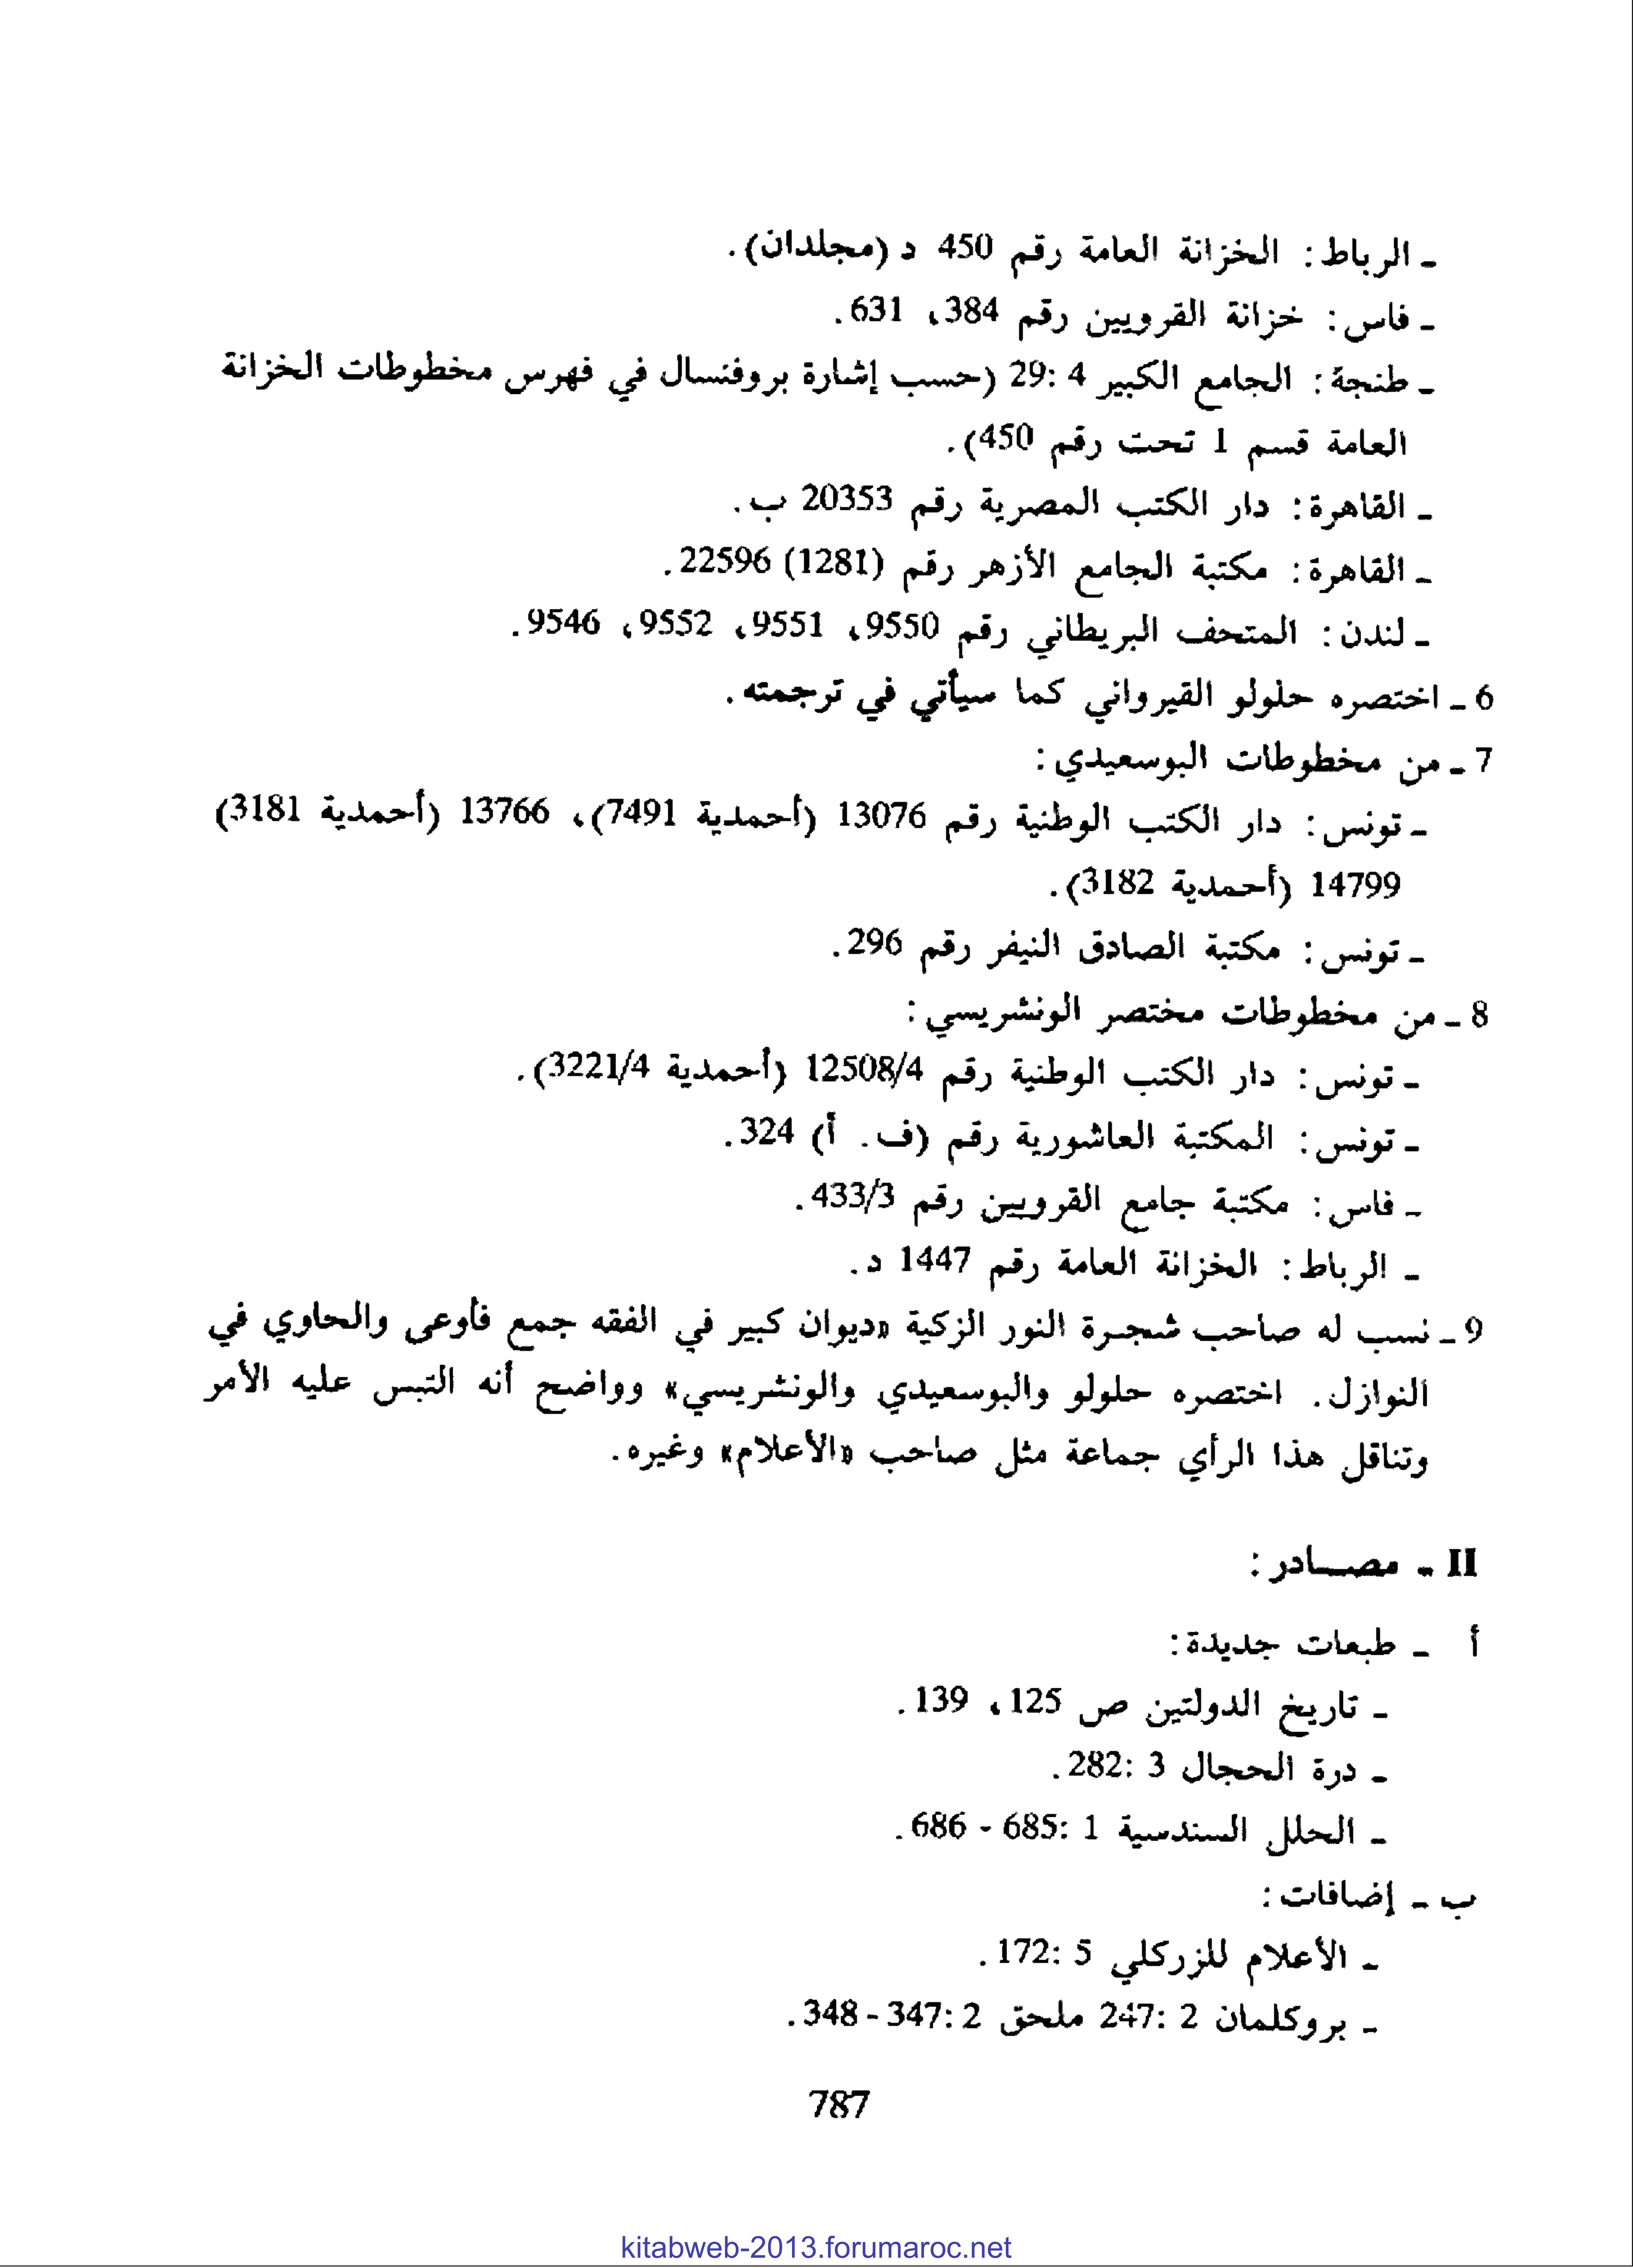 ـ الرباط : الخزانة العامة رقم 450 د (مجلدان).
ـ فاس : خزانة القرويين رقم 384، 631.
ـ طنجة : الجامع الكبير 4 :29 (حسب إشارة بروفنسال في فهرس مخطوطات الخزانة
العامة قسم 1 تحت رقم 450).
ـ القاهرة : دار الكتب المصرية رقم 20353 ب.
ـ القاهرة : مكتبة الجامع الأزهر رقم (1281) 22596.
ـ لندن : المتحف البريطاني رقم 9550، 9551، 9552، 9546.
6 ـ اختصره حلولو القيرواني كما سيأتي في ترجمته.
7 ـ من مخطوطات البوسعيدي :
ـ تونس : دار الكتب الوطنية رقم 13076 (أحمدية 7491)، 13766 (أحمدية 3181)
14799 (أحمدية 3182).
ـ تونس : مكتبة الصادق النيفر رقم 296.
8 ـ من مخطوطات مختصر الونشريسي :
ـ تونس : دار الكتب الوطنية رقم 12508/4 (أحمدية 3221/4).
ـ تونس : المكتبة العاشورية رقم (ف. أ) 324.
ـ فاس : مكتبة جامع القرويين رقم 433/3.
ـ الرباط : الخزانة العامة رقم 1447 د.
9 ـ نسب له صاحب شجرة النور الزكية «ديوان كبير في الفقه جمع فأوعى والحاوي في
النوازل. اختصره حلولو والبوسعيدي والونشريسي» وواضح أنه التبس عليه الأمر
وتناقل هذا الرأي جماعة مثل صاحب «الأعلام» وغيره.
II ـ مصــادر :
أ ـ طبعات جديدة :
ـ تاريخ الدولتين ص 125، 139.
ـ درة الحجال 3 :282.
ـ الحلل السندسية 1 :685 - 686.
ب ـ إضافات :
ـ الأعلام للزركلي 5 :172.
ـ بروكلمان 2 :247 ملحق 2 :347 - 348.
787
kitabweb-2013.forumaroc.net